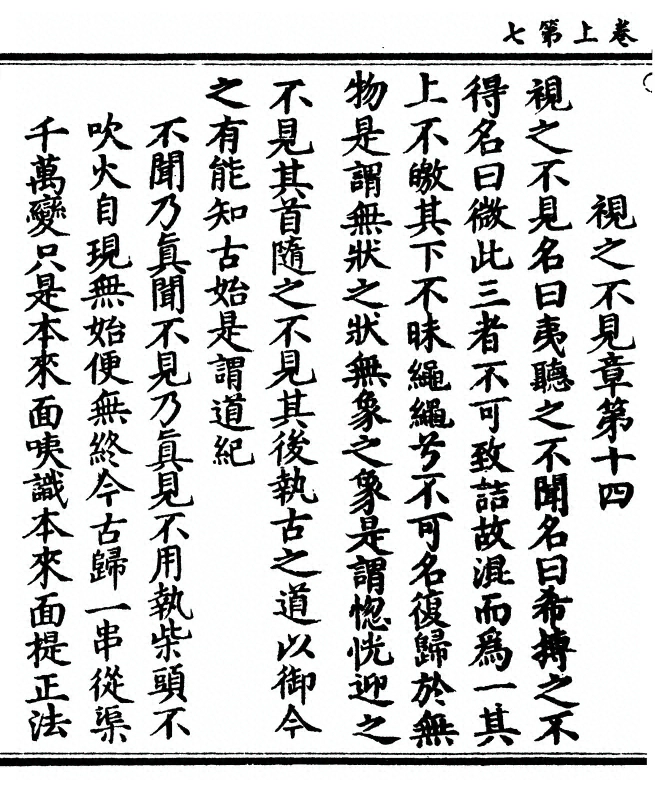 卷上第七
視之不見章第十四
視之不見名曰夷聽之不聞名曰希摶之不
得名曰微此三者不可致詰故混而爲一其
上不皦其下不昧繩繩兮不可名復歸於無
物是謂無狀之狀無象之象是謂惚恍迎之
不見其首隨之不見其後執古之道以御今
之有能知古始是謂道紀
不聞乃眞聞不見乃眞見不用執柴頭不
吹火自現無始便無終今古歸一串從渠
千萬變只是本來面咦識本來面提正法